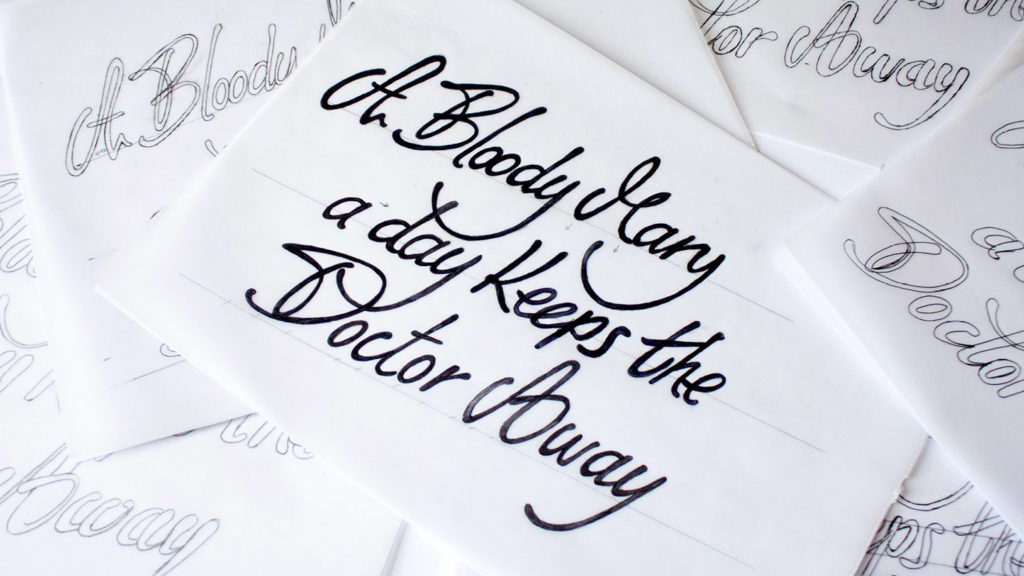 A Bloody Mary
a day Keeps the
Doctor Away
A Bloody
for Away
a
Doctor
Away
the
ps the